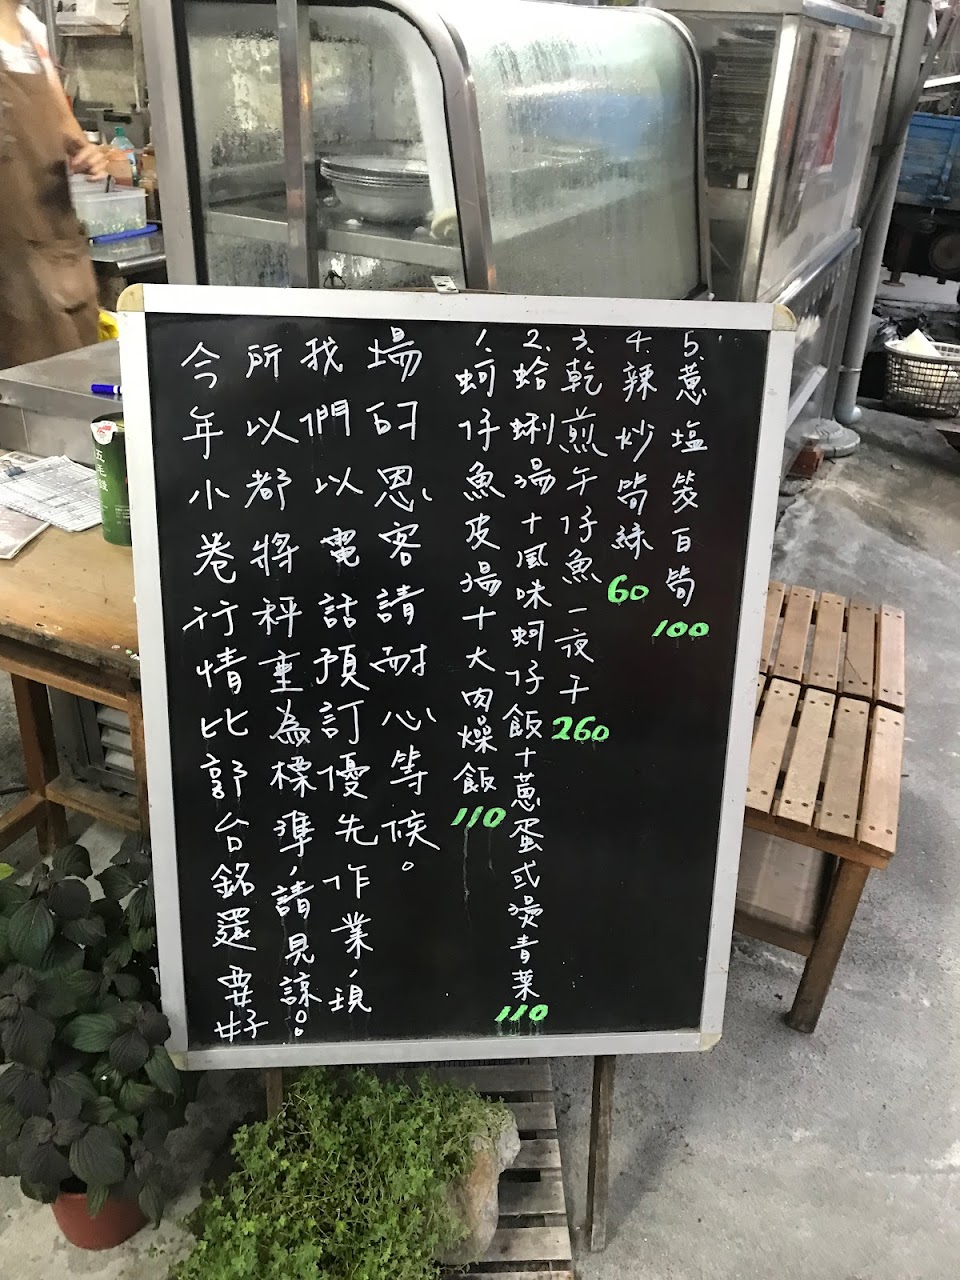 今年小卷行情比郭台銘還要好
所以都將秤重為標準,請見諒。
我們以電話預訂優先作業,現
場的恩客請耐心等候。
1.蚵仔魚皮湯+大肉燥飯 110
2.蛤蜊湯+風味蚵仔飯+蔥蛋或燙青菜 110
3.乾煎午仔魚一夜干 260
4.辣炒筍絲 60
5.蔥塩筊百筍 100